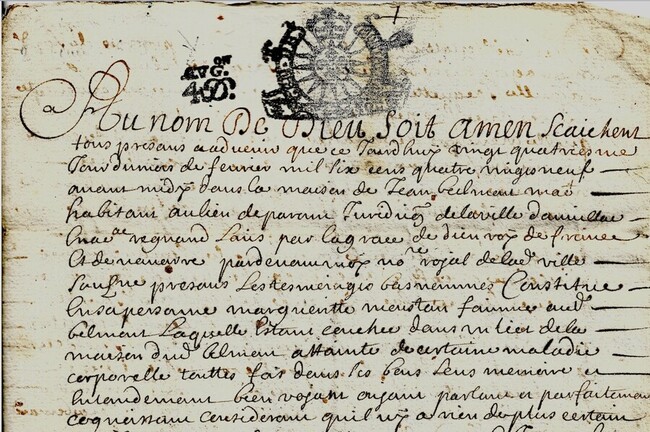 AVG.ON
4 S D.
Au nom De Dieu Soit amen Scaichent
tous presans a aduenir que ce Jourdhuy vingt quatriesme
Jour du mois de feurier mil six cens quatre vingts neuf
auant midy dans la maison de Jean belmeau
habitant au lieu de Juridicq de la ville
regnant Louis par la grace de dieu roy de france
Et de nauarre par deuant moy no.re royal de lad. ville
presans Les tesmoingz bas nommes Constitue
En sa personne margueritte femme aud.
belmeau Laquelle Estant couchee dans un lict de la
maison dud. belmeau attainte de certaine maladie
corporelle touttes fois dans ses bons sens memoire et
Entandement bien voyant oyant parlant et parfaitemant
cognoissant considerant quil ny a rien de plus certain